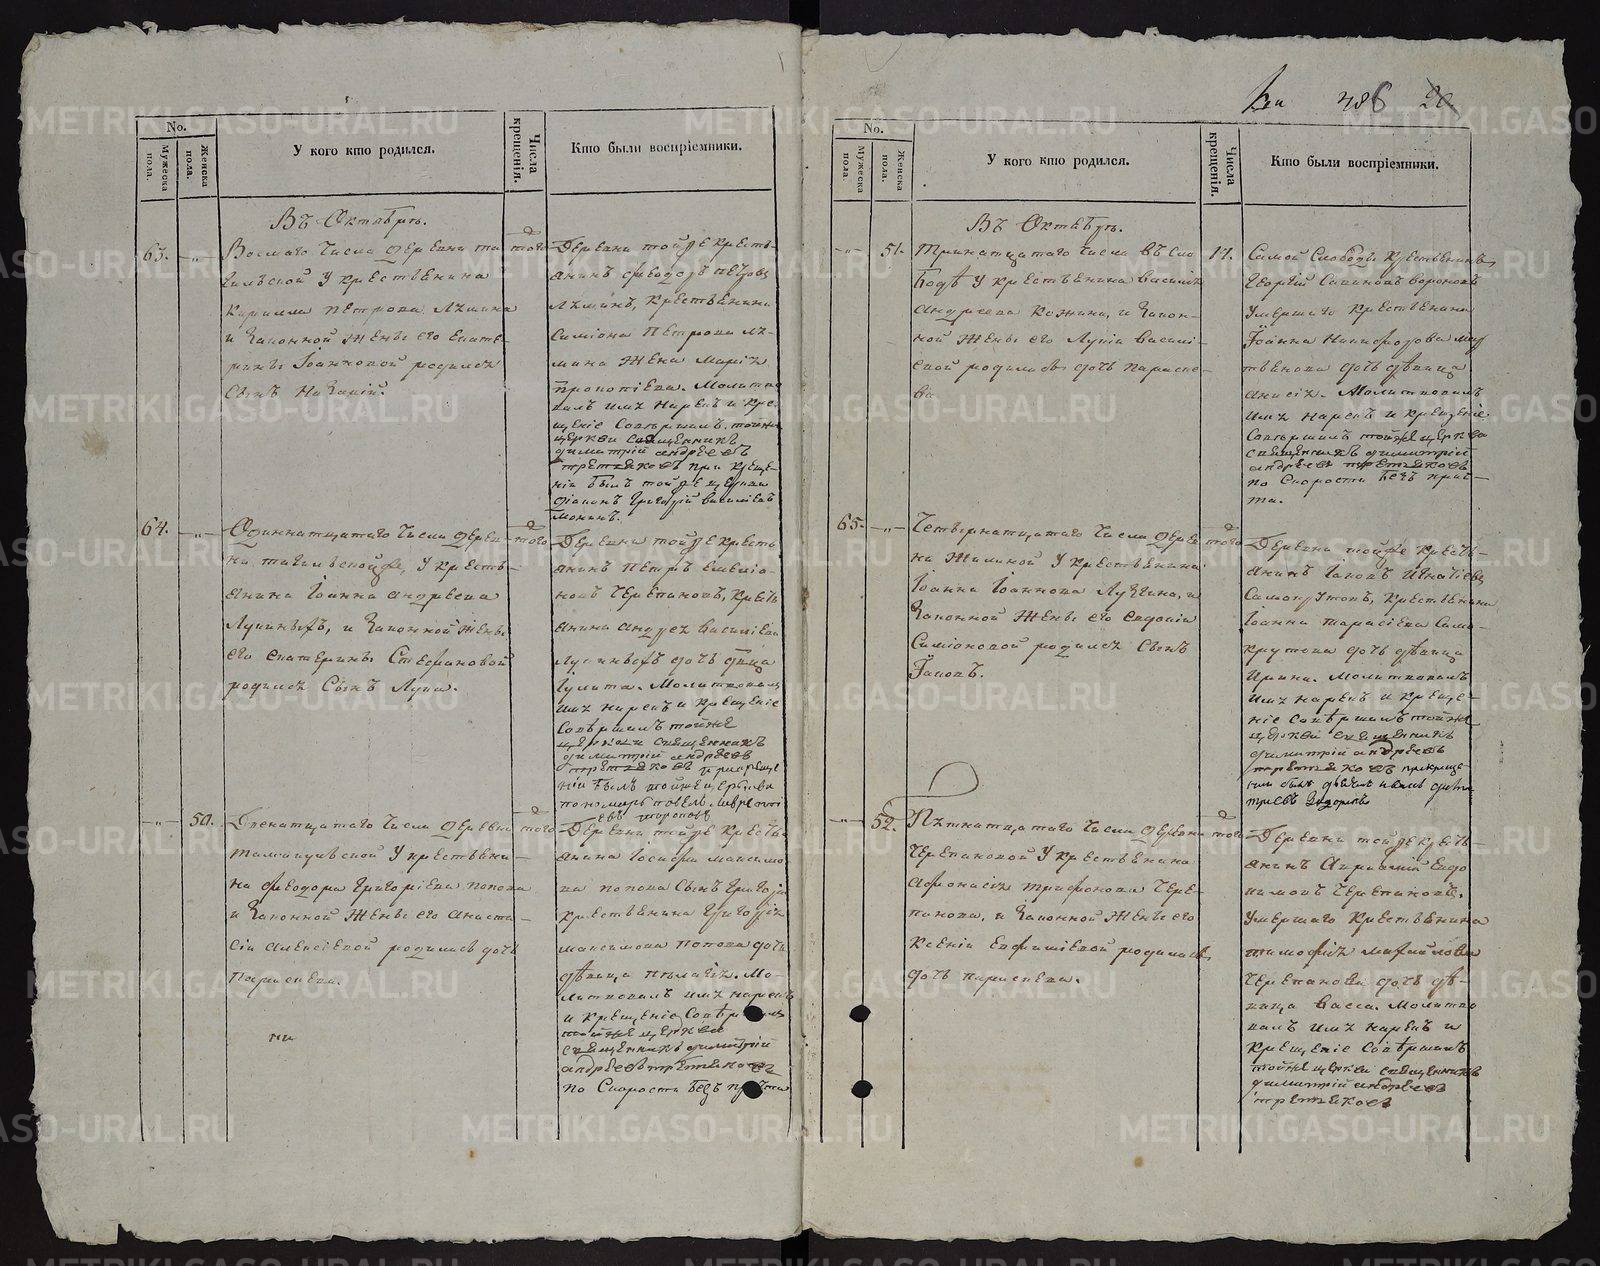 No.
Мужеска пола.
Женска пола.
У кого кто родился.
Числа крещенія.
Кто были воспріемники.
Въ Октябрѣ.
63.
Восмаго числа деревни
У крестьянина
Кирилла Петрова
и законной жены его Екате-
рины Іоанновой родился
сынъ
того
Деревни тойже кресть-
янинъ Феодоръ Петровъ
крестьянина
Симіона Петрова
жена Марія
Прокопіева. Молитво-
валъ имя нарекъ и кре-
щеніе совершилъ тойже
церкви священникъ
Димитрій Андреевъ
Третьяковъ при креще-
ніи былъ тойже церкви
діаконъ Григорій Василіевъ
64.
Одиннатцатаго числа дерев-
ни У кресть-
янина Іоанна Андреева
и законной жены
его Екатерины Стефановой
родился сынъ Лука.
того
Деревни тойже кресть-
янинъ Петръ
Черепановъ, кресть-
янина Андрея Василіева
дочь
Іулита. Молитвовалъ
имя нарекъ и крещеніе
совершилъ тойже
церкви священникъ
Димитрій Андреевъ
Третьяковъ при креще-
ніи былъ тойже церкви
пономарь
50.
Двенатцатаго числа деревни
У крестьяни-
на Феодора Григоріева Попова
и законной жены его Анаста-
сіи Алексіевой родилась дочь
Параскева.
того
Деревни тойже кресть-
янина Іосифа Максимо-
ва Попова сынъ Григорій
крестьянина Григорія
Максимова Попова дочь
дѣвица Пелагія. Мо-
литвовалъ имя нарекъ
и крещеніе совершилъ
тойже церкви
священникъ Димитрій
Андреевъ Третьяковъ
по скорости безъ причта
486
20
No.
Мужеска пола.
Женска пола.
У кого кто родился.
Числа крещенія.
Кто были воспріемники.
Въ Октябрѣ.
51.
Тринатцатаго числа въ Сло-
бодѣ У крестьянина Василія
Андреева Кожина, и закон-
ной жены его Лукіи Василі-
евой родилась дочь Параске-
ва.
17.
Самой Слободы крестьянинъ
Георгій Савиновъ Вороновъ
умершаго крестьянина
Іоанна Никифорова
дочь дѣвица
Анисія. Молитвовалъ
имя нарекъ и крещеніе
совершилъ тойже церкви
священникъ Димитрій
Андреевъ Третьяковъ
по скорости безъ прич-
та.
65.
Четвернатцатаго числа дерев-
ни Жилиной У крестьянина
Іоанна Іоаннова Лузгина, и
законной жены его Евдокіи
Симіоновой родился сынъ
Іаковъ.
того
Деревни тойже кресть-
янинъ Іаковъ Игнатіевъ
Самокрутовъ, крестьянина
Іоанна Тарасіева Само-
крутова дочь дѣвица
Ирина. Молитвовалъ
имя нарекъ и крещє-
ніе совершилъ тойже
церкви священникъ
Димитрій Андреевъ
Третьяковъ при креще-
ніи былъ
52.
Пятнатцатаго числа деревни
Черепановой У крестьянина
Афонасія Трифонова Чере-
панова, и законной жены его
Ксеніи Евфиміевой родилась
дочь Параскева.
того
Деревни тойже кресть-
янинъ Евдо-
кимовъ Черепановъ,
умершаго крестьянина
Тимофея Михайлова
Черепанова дочь дѣ-
вица Васса. Молитво-
валъ имя нарекъ и
крещеніе совершилъ
тойже церкви священникъ
Димитрій Андреевъ
Третьяковъ
METRIKI.GASO-URAL.RU